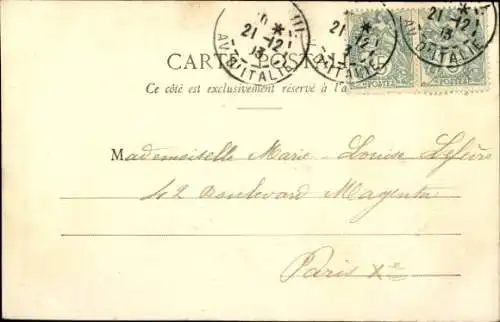 21 -12
03
AV. D'ITALIE
21 -12
D'ITALIE
21 -12
03
AV. D'ITALIE
CARTE POSTALE
Ce côté est exclusivement réservé à l'a
POSTES
POSTES
Mademoiselle Marie-Louise Lefèvre
42 Boulevard Magenta
Paris Xe